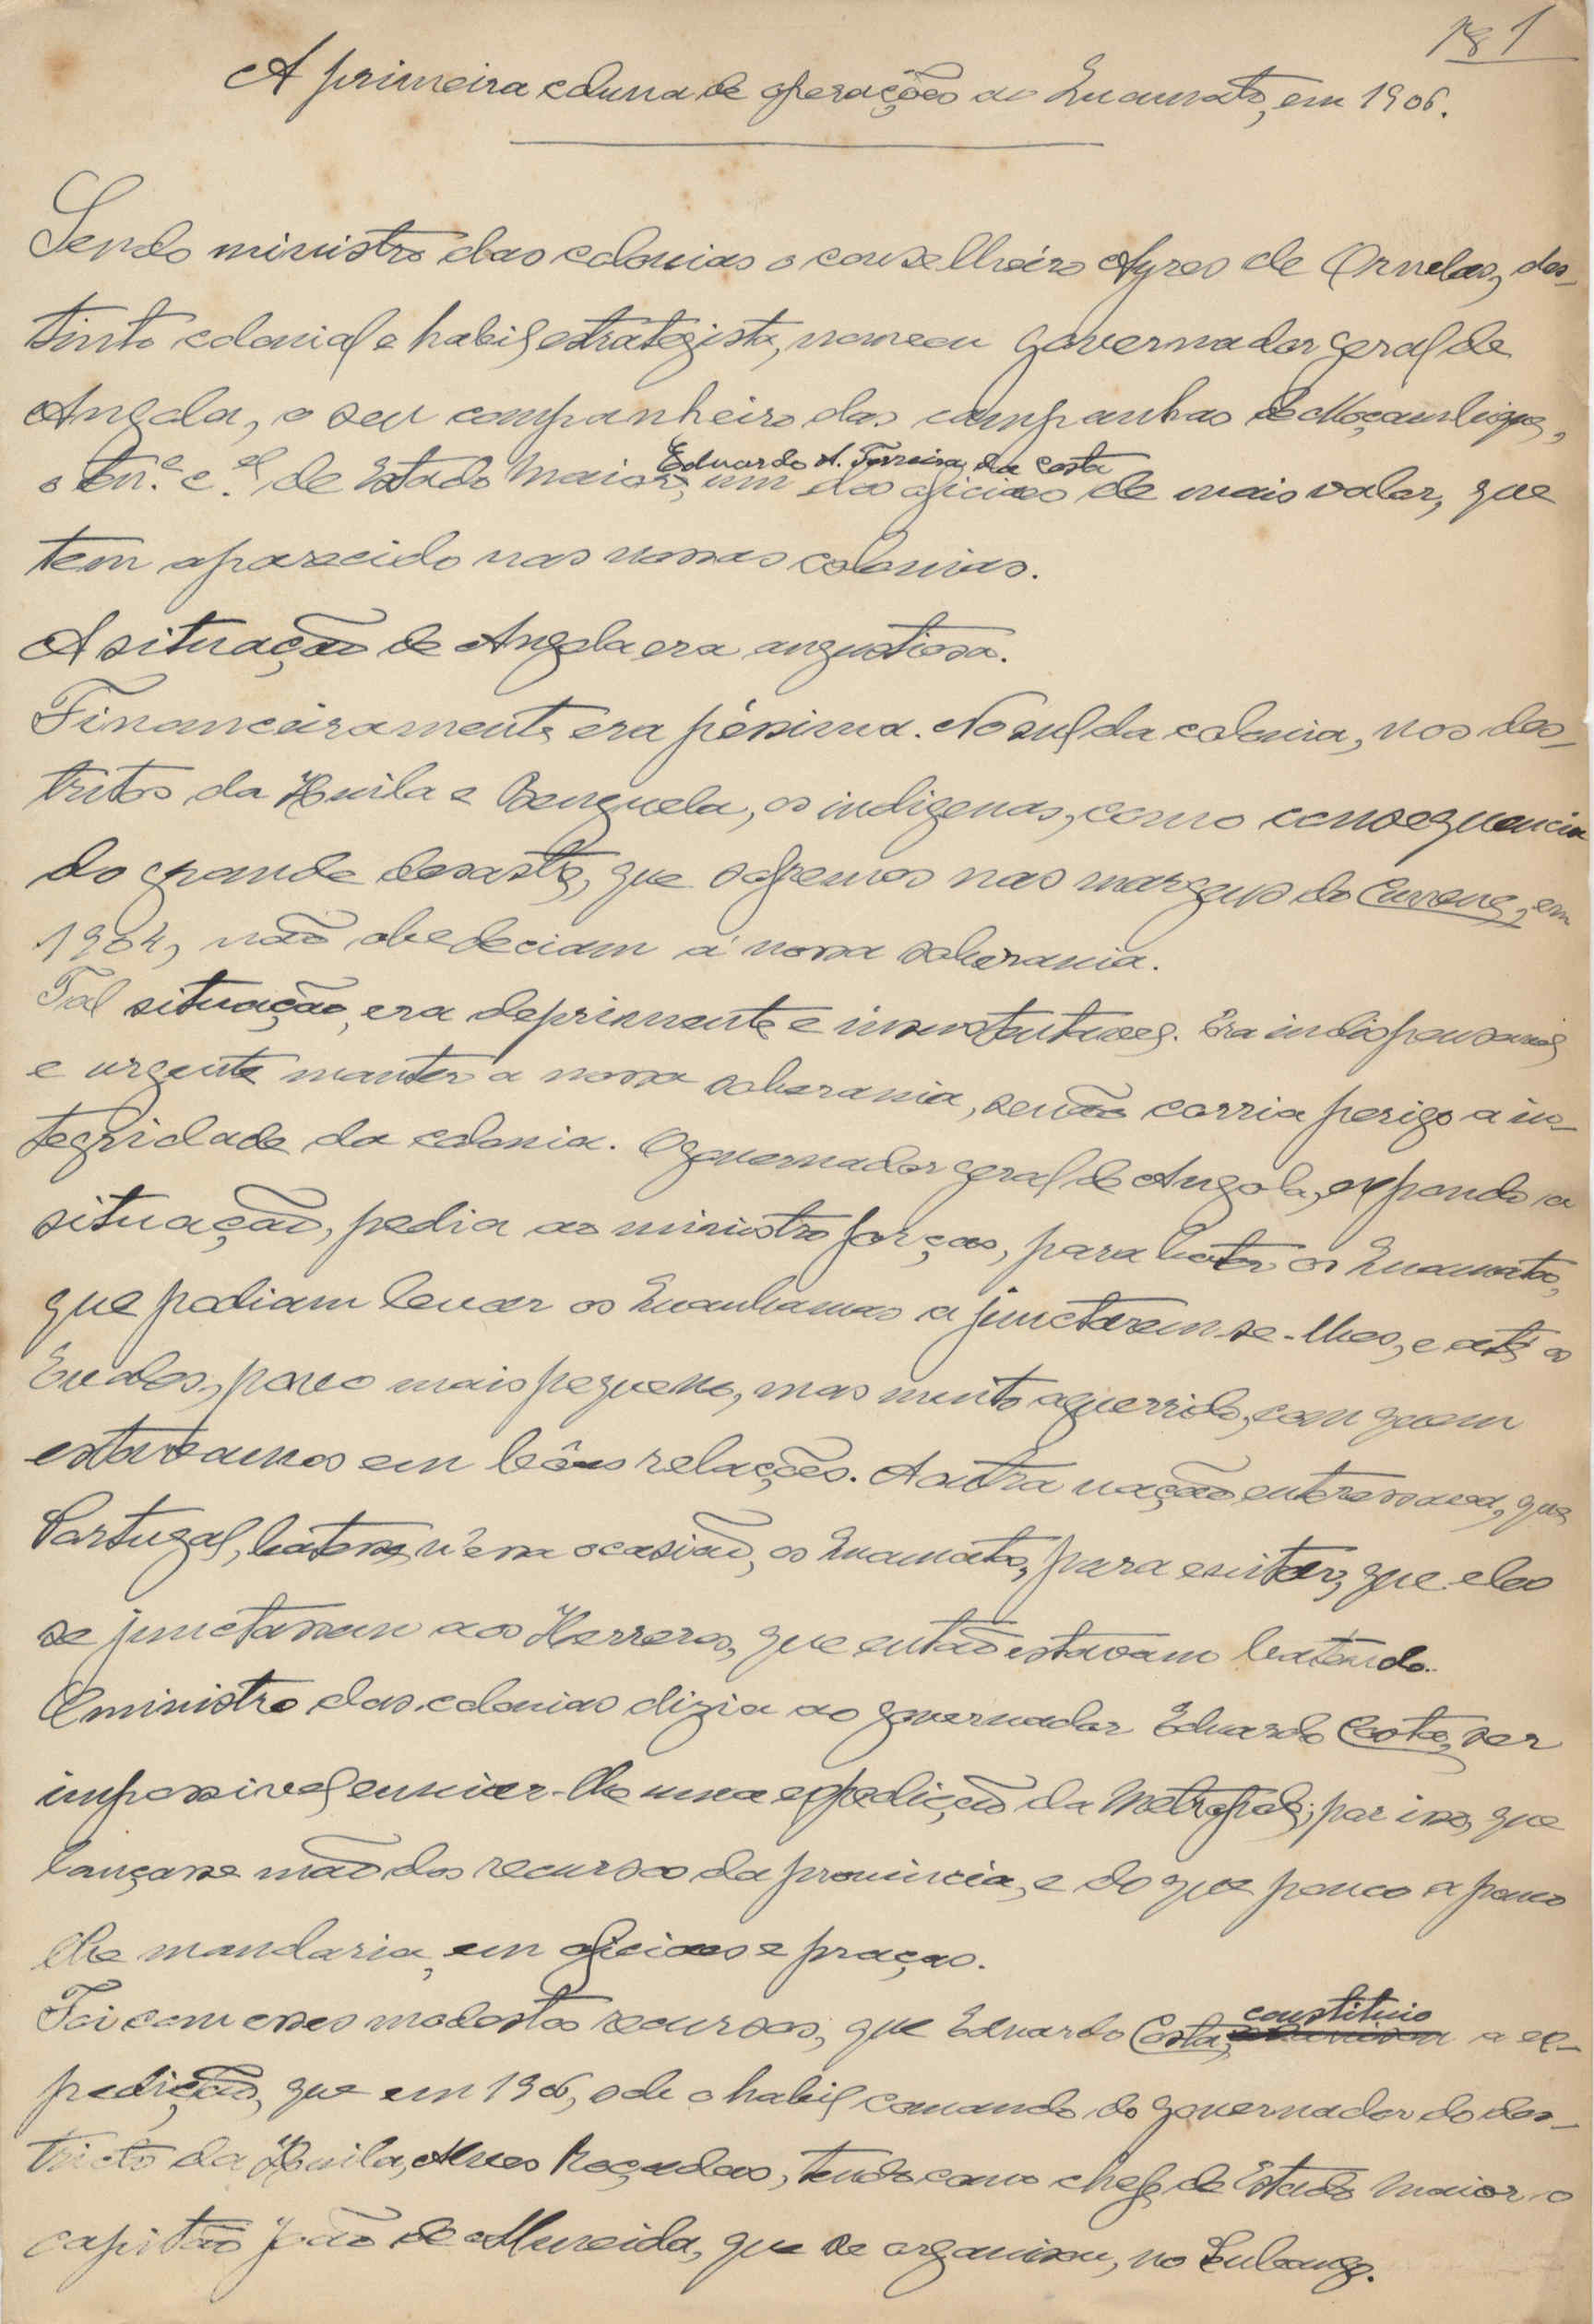 181
A primeira coluna de operações ao Cuamato, em 1906.
Sendo ministro das colonias o conselheiro Ayres de Ornelas, des-
tinto colonial e habil estrategista, nomeou governador geral de
Angola, o seu companheiro das campanhas de Moçambique,
Eduardo A. Ferreira da Costa
o ten.e c.el de Estado Maior, um dos oficiaes de mais valor, que
tem aparecido nas nossas colonias.
A situação de Angola era angustiosa.
Financeiramente era péssima. No sul da colonia, nos des-
tritos da Huila e Benguela, os indigenas, como consequencia
do grande desastre, que sofremos nas margens do Cunene, em
1904, não obedeciam á nossa soberania.
Tal situação, era deprimente e insustentavel. Era indispensavel
e urgente manter a nossa soberania, senão corria perigo a in-
tegridade da colonia. O governador geral de Angola, expondo a
situação, pedia ao ministro forças, para bater os Cuamatos,
que podiam levar os Cuanhamas a junctarem-se-lhes, e até os
Evales, povo mais pequeno, mas muito aguerrido, com quem
estavamos em bôas relações. A outra nação enteressava, que
Portugal, batesse n'essa ocasião, os Cuamatos, para evitar, que eles
se junctassem aos Herreros, que então estavam batendo.
O ministro das colonias dizia ao governador Eduardo Costa, ser
impossivel enviar-lhe uma expedição da Metropole; por isso, que
lançasse mão dos recursos da provincia, e do que pouco a pouco
lhe mandaria, em oficiaes e praças.
constituio
Foi com esses modestos recursos, que Eduardo Costa, a ex-
pedição, que em 1906, sob o habil comando do governador do des-
tricto da Huila, Alves Roçadas, tendo como chefe de Estado Maior o
capitão João de Almeida, que se organisou, no Lubango.